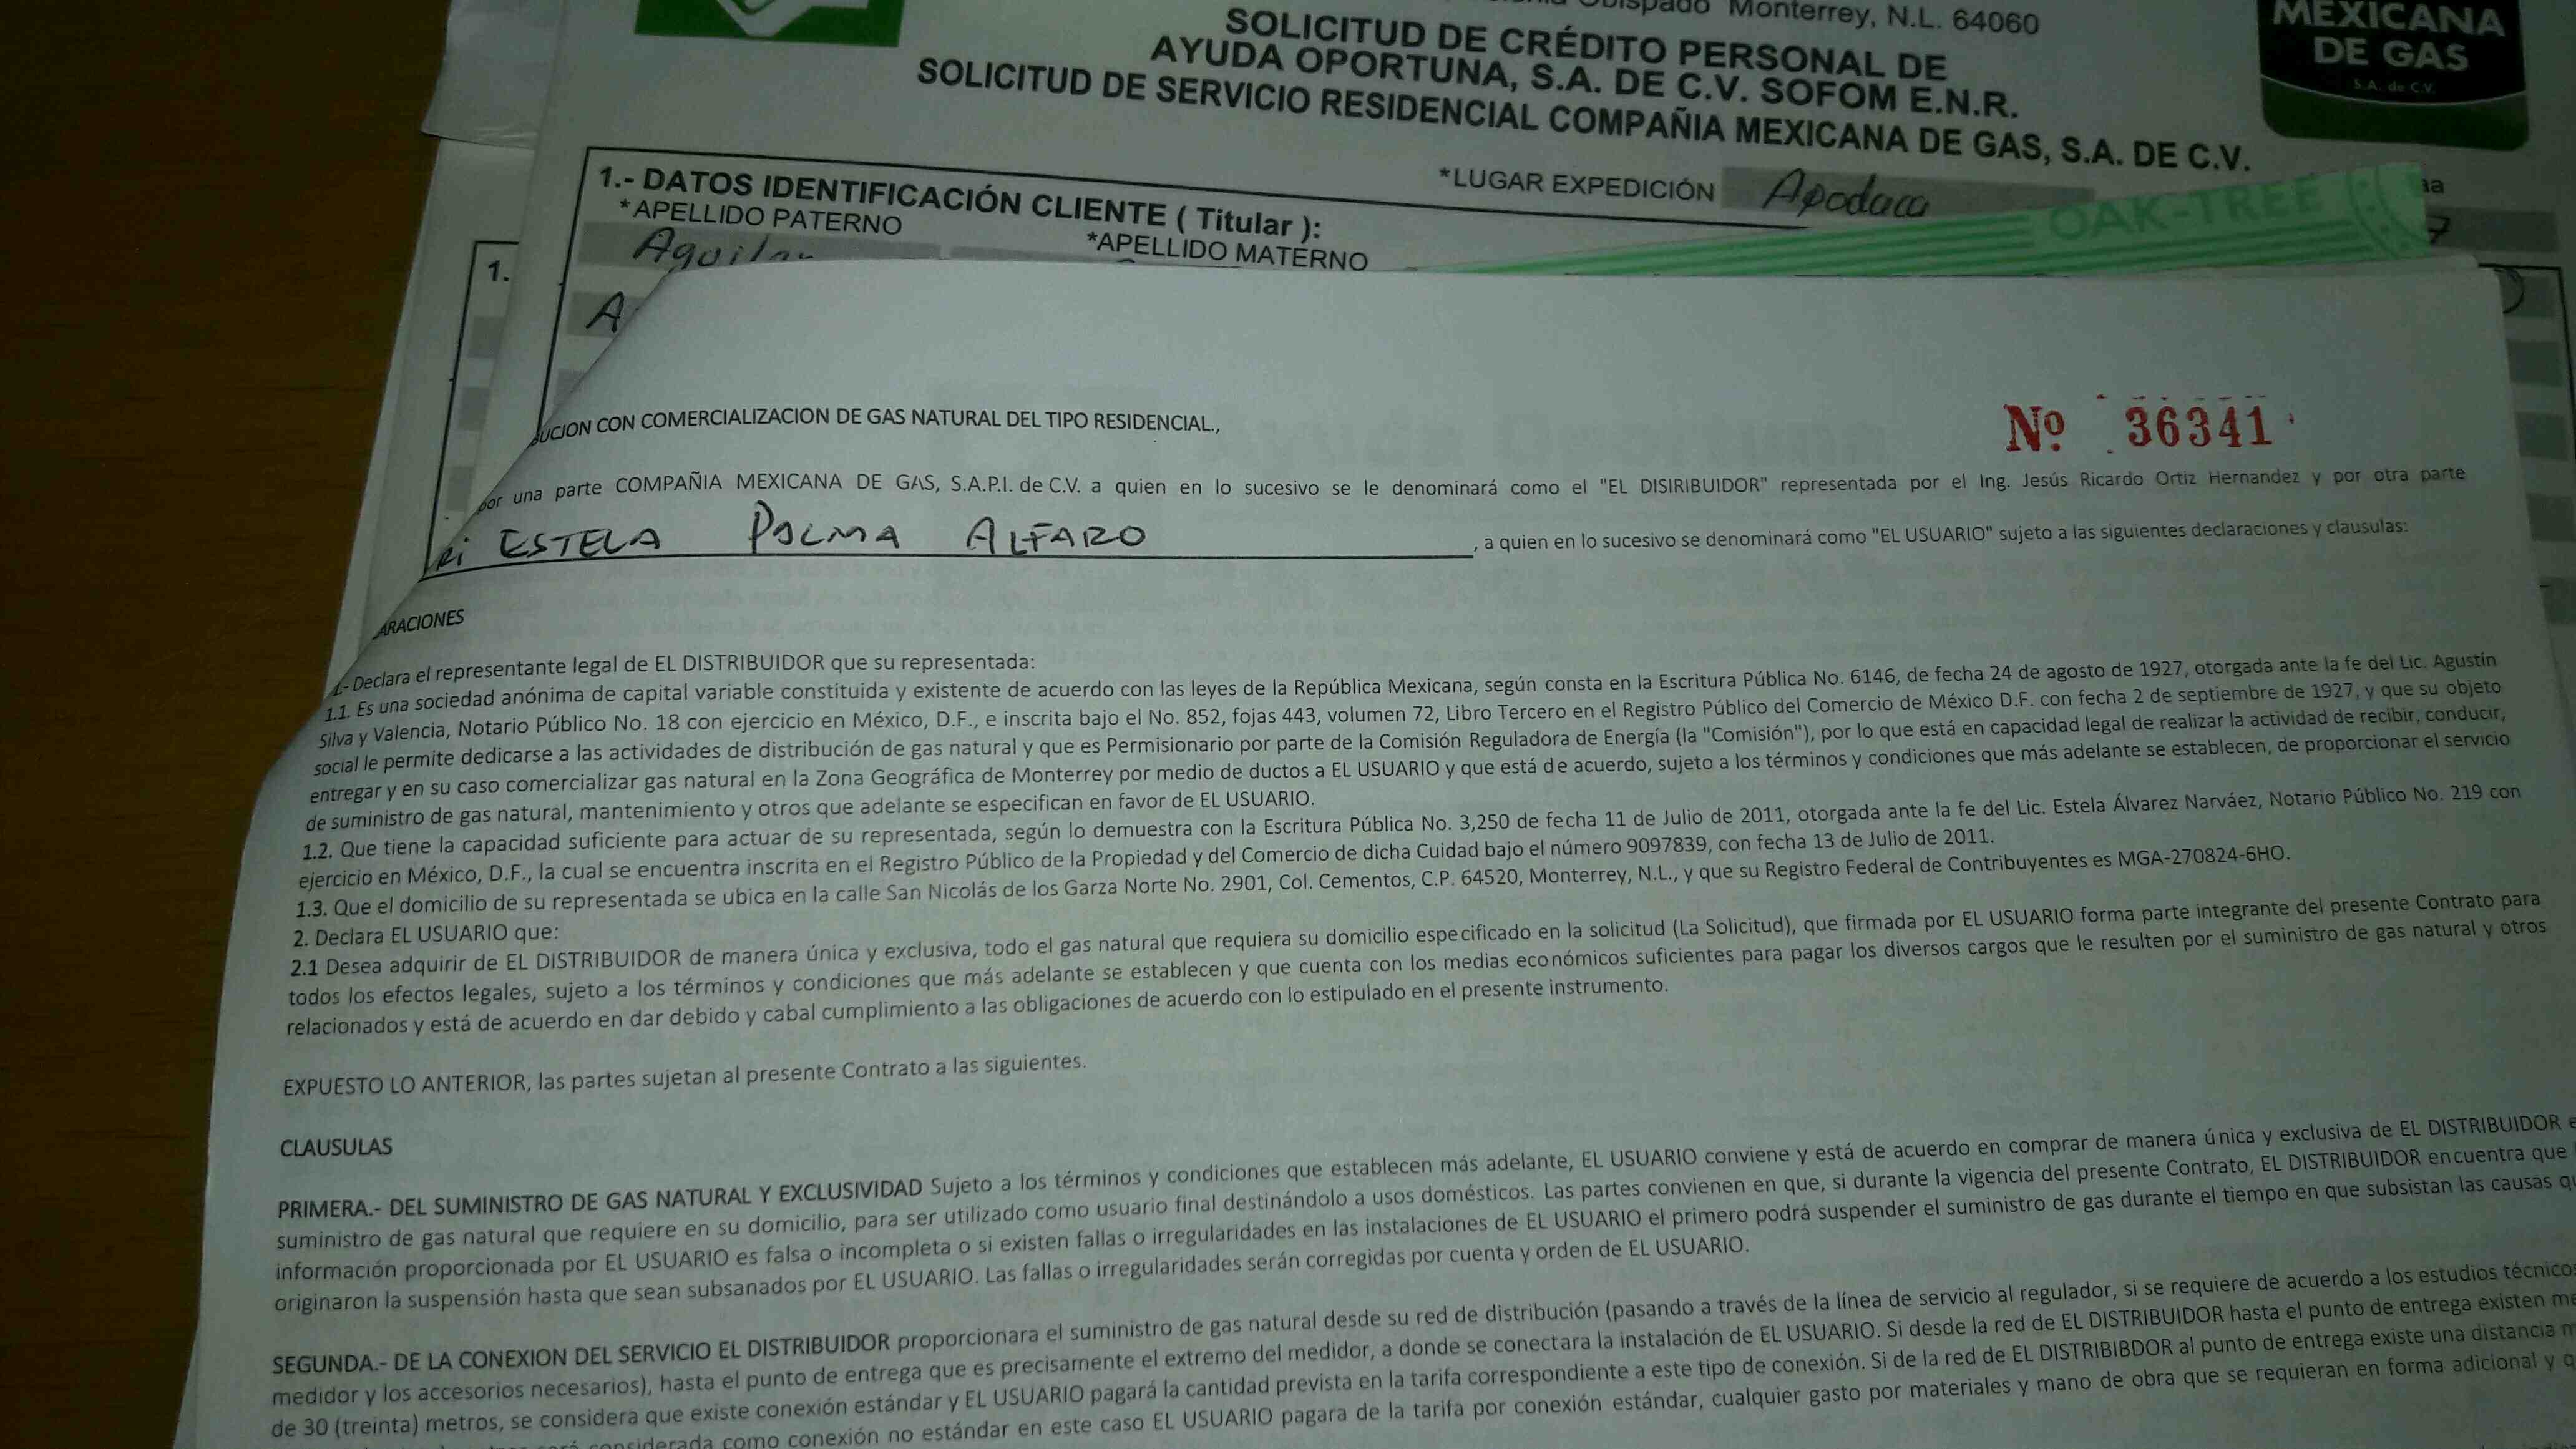 Obispado Monterrey, N.L. 64060
SOLICITUD DE CRÉDITO PERSONAL DE
AYUDA OPORTUNA, S.A. DE C.V. SOFOM E.N.R.
SOLICITUD DE SERVICIO RESIDENCIAL COMPAÑIA MEXICANA DE GAS, S.A. DE C.V.
MEXICANA
DE GAS
S.A. de C.V.
1.- DATOS IDENTIFICACIÓN CLIENTE ( Titular ):
*LUGAR EXPEDICIÓN Apodaca
*APELLIDO PATERNO
*APELLIDO MATERNO
OAK-TREE
7
Aguilar
1.
A
UCION CON COMERCIALIZACION DE GAS NATURAL DEL TIPO RESIDENCIAL.,
Nº 36341
por una parte COMPAÑIA MEXICANA DE GAS, S.A.P.I. de C.V. a quien en lo sucesivo se le denominará como el "EL DISIRIBUIDOR" representada por el Ing. Jesús Ricardo Ortiz Hernandez y por otra parte
Ri ESTELA PALMA ALFARO , a quien en lo sucesivo se denominará como "EL USUARIO" sujeto a las siguientes declaraciones y clausulas:
ARACIONES
1.- Declara el representante legal de EL DISTRIBUIDOR que su representada:
1.1. Es una sociedad anónima de capital variable constituida y existente de acuerdo con las leyes de la República Mexicana, según consta en la Escritura Pública No. 6146, de fecha 24 de agosto de 1927, otorgada ante la fe del Lic. Agustín
Silva y Valencia, Notario Público No. 18 con ejercicio en México, D.F., e inscrita bajo el No. 852, fojas 443, volumen 72, Libro Tercero en el Registro Público del Comercio de México D.F. con fecha 2 de septiembre de 1927, y que su objeto
social le permite dedicarse a las actividades de distribución de gas natural y que es Permisionario por parte de la Comisión Reguladora de Energía (la "Comisión"), por lo que está en capacidad legal de realizar la actividad de recibir, conducir,
entregar y en su caso comercializar gas natural en la Zona Geográfica de Monterrey por medio de ductos a EL USUARIO y que está de acuerdo, sujeto a los términos y condiciones que más adelante se establecen, de proporcionar el servicio
de suministro de gas natural, mantenimiento y otros que adelante se especifican en favor de EL USUARIO.
1.2. Que tiene la capacidad suficiente para actuar de su representada, según lo demuestra con la Escritura Pública No. 3,250 de fecha 11 de Julio de 2011, otorgada ante la fe del Lic. Estela Álvarez Narváez, Notario Público No. 219 con
ejercicio en México, D.F., la cual se encuentra inscrita en el Registro Público de la Propiedad y del Comercio de dicha Cuidad bajo el número 9097839, con fecha 13 de Julio de 2011.
1.3. Que el domicilio de su representada se ubica en la calle San Nicolás de los Garza Norte No. 2901, Col. Cementos, C.P. 64520, Monterrey, N.L., y que su Registro Federal de Contribuyentes es MGA-270824-6HO.
2. Declara EL USUARIO que:
2.1 Desea adquirir de EL DISTRIBUIDOR de manera única y exclusiva, todo el gas natural que requiera su domicilio especificado en la solicitud (La Solicitud), que firmada por EL USUARIO forma parte integrante del presente Contrato para
todos los efectos legales, sujeto a los términos y condiciones que más adelante se establecen y que cuenta con los medias económicos suficientes para pagar los diversos cargos que le resulten por el suministro de gas natural y otros
relacionados y está de acuerdo en dar debido y cabal cumplimiento a las obligaciones de acuerdo con lo estipulado en el presente instrumento.
EXPUESTO LO ANTERIOR, las partes sujetan al presente Contrato a las siguientes.
CLAUSULAS
PRIMERA.- DEL SUMINISTRO DE GAS NATURAL Y EXCLUSIVIDAD Sujeto a los términos y condiciones que establecen más adelante, EL USUARIO conviene y está de acuerdo en comprar de manera única y exclusiva de EL DISTRIBUIDOR e
suministro de gas natural que requiere en su domicilio, para ser utilizado como usuario final destinándolo a usos domésticos. Las partes convienen en que, si durante la vigencia del presente Contrato, EL DISTRIBUIDOR encuentra que
información proporcionada por EL USUARIO es falsa o incompleta o si existen fallas o irregularidades en las instalaciones de EL USUARIO el primero podrá suspender el suministro de gas durante el tiempo en que subsistan las causas qu
originaron la suspensión hasta que sean subsanados por EL USUARIO. Las fallas o irregularidades serán corregidas por cuenta y orden de EL USUARIO.
SEGUNDA.- DE LA CONEXION DEL SERVICIO EL DISTRIBUIDOR proporcionara el suministro de gas natural desde su red de distribución (pasando a través de la línea de servicio al regulador, si se requiere de acuerdo a los estudios técnicos
medidor y los accesorios necesarios), hasta el punto de entrega que es precisamente el extremo del medidor, a donde se conectara la instalación de EL USUARIO. Si desde la red de EL DISTRIBUIDOR hasta el punto de entrega existen me
de 30 (treinta) metros, se considera que existe conexión estándar y EL USUARIO pagará la cantidad prevista en la tarifa correspondiente a este tipo de conexión. Si de la red de EL DISTRIBIBDOR al punto de entrega existe una distancia m
considerada como conexión no estándar en este caso EL USUARIO pagara de la tarifa por conexión estándar, cualquier gasto por materiales y mano de obra que se requieran en forma adicional y q